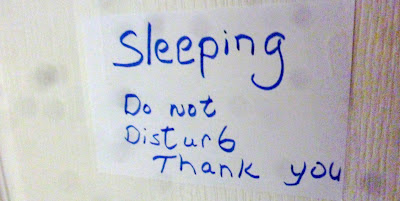 Sleeping
Do not
Disturb
Thank you